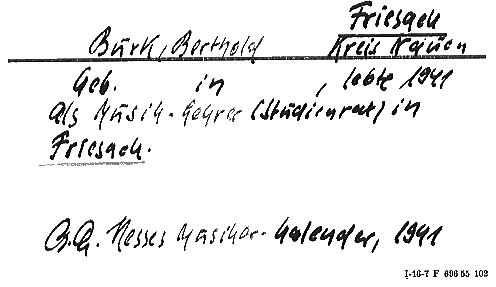 Friesack
Burk, Berthold Kreis Nauen
Geb. in , lebte 1941
als Musik-Lehrer (Studienrat) in
Friesack.
B.Q. Hesses Musiker-Kalender, 1941
I-16-7 F 696 55 102